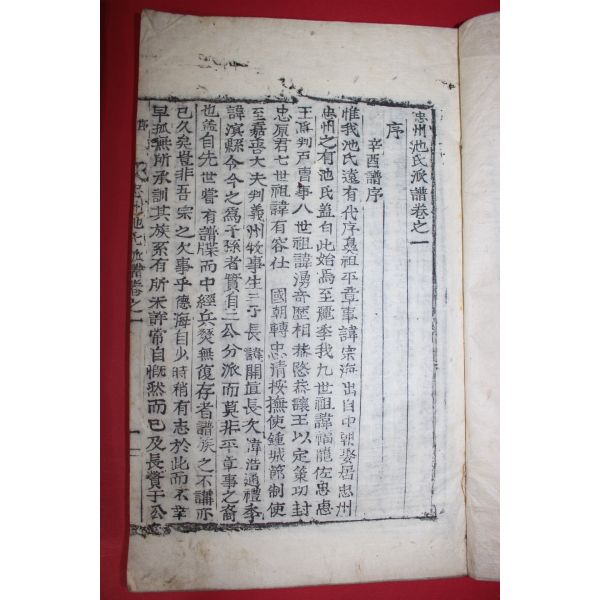 忠州池氏派譜卷之一
序
辛酉譜序
惟我池氏遠有代序鼻祖平章事諱宗海出自中朝娶居忠州
忠州之有池氏盖自此始焉至麗季我九世祖諱福龍佐忠惠
王爲判戶曹事八世祖諱湧奇歷相恭愍恭讓王以定策功封
忠原君七世祖諱有容仕 國朝轉忠淸按撫使鍾城節制使
至嘉善大夫判義州牧事生三子長諱開直長次諱浩通禮季
諱濱縣令今之爲子孫者實自三公分派而莫非平章事之裔
也盖自先世嘗有譜牒而中經兵燹無復存者譜族之不講亦
已久矣豈非吾宗之欠事乎德海自少時稍有志於此而不幸
早孤無所承訓其族系有所未詳常自慨然而已及長嘗于公
序
忠州池氏派譜卷之一
一